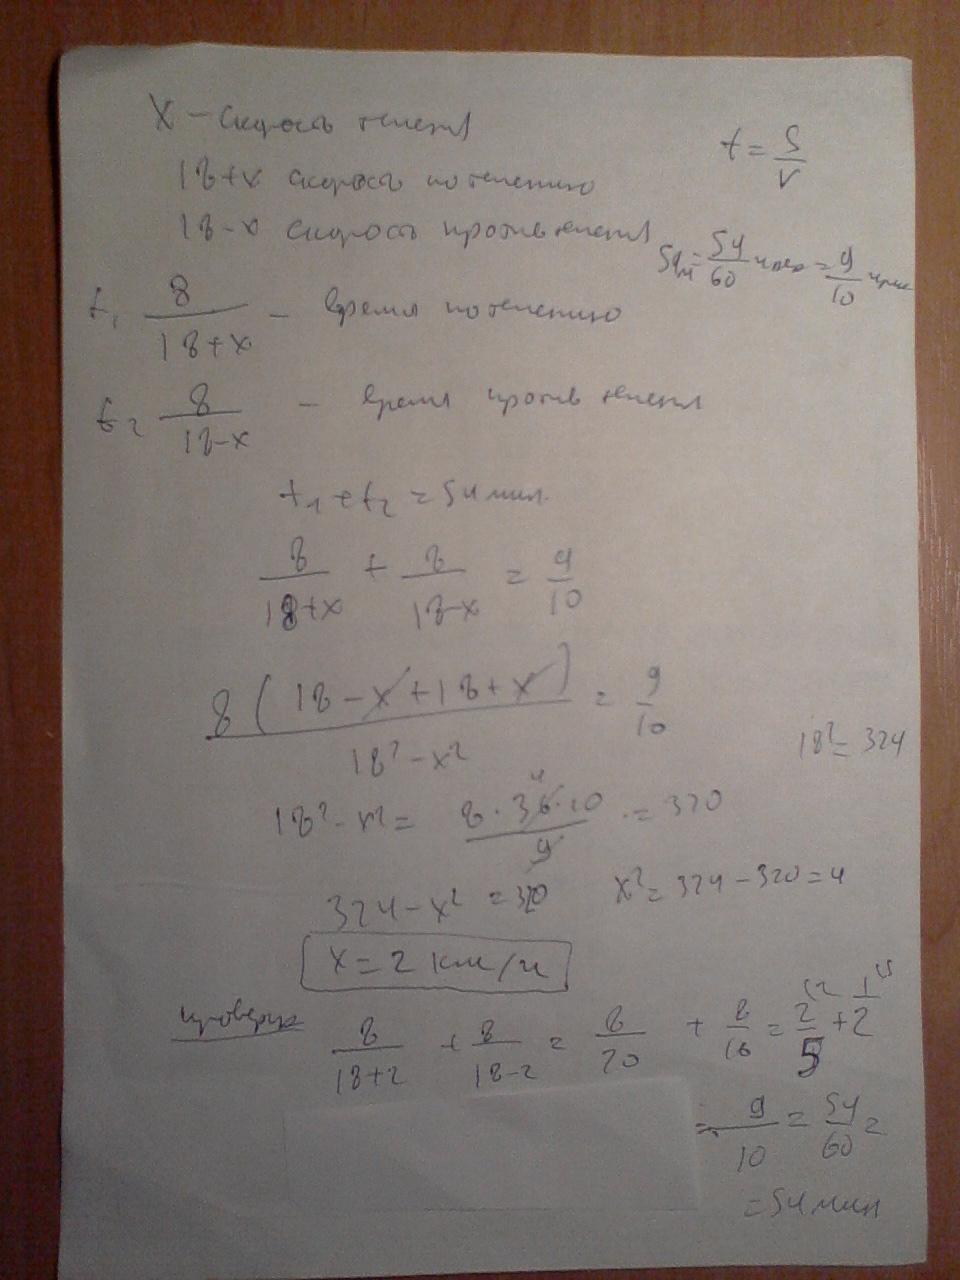 x – скорость течения
t = S/v
18+x скорость по течению
18-x скорость против течения
54м = 54/60 часа = 9/10 часа
t₁ 8/(18+x) – время по течению
t₂ 8/(18-x) – время против течения
t₁ + t₂ = 54 мин.
8/(18+x) + 8/(18-x) = 9/10
8(18-x+18+x)/(18²-x²) = 9/10
18² = 324
18² - x² = (8·36·10)/9 = 320
324 - x² = 320
x² = 324 - 320 = 4
x = 2 км/ч
проверка
8/(18+2) + 8/(18-2) = 8/20 + 8/16 = 2/5 + 1/2
= 9/10 = 54/60 =
= 54 мин